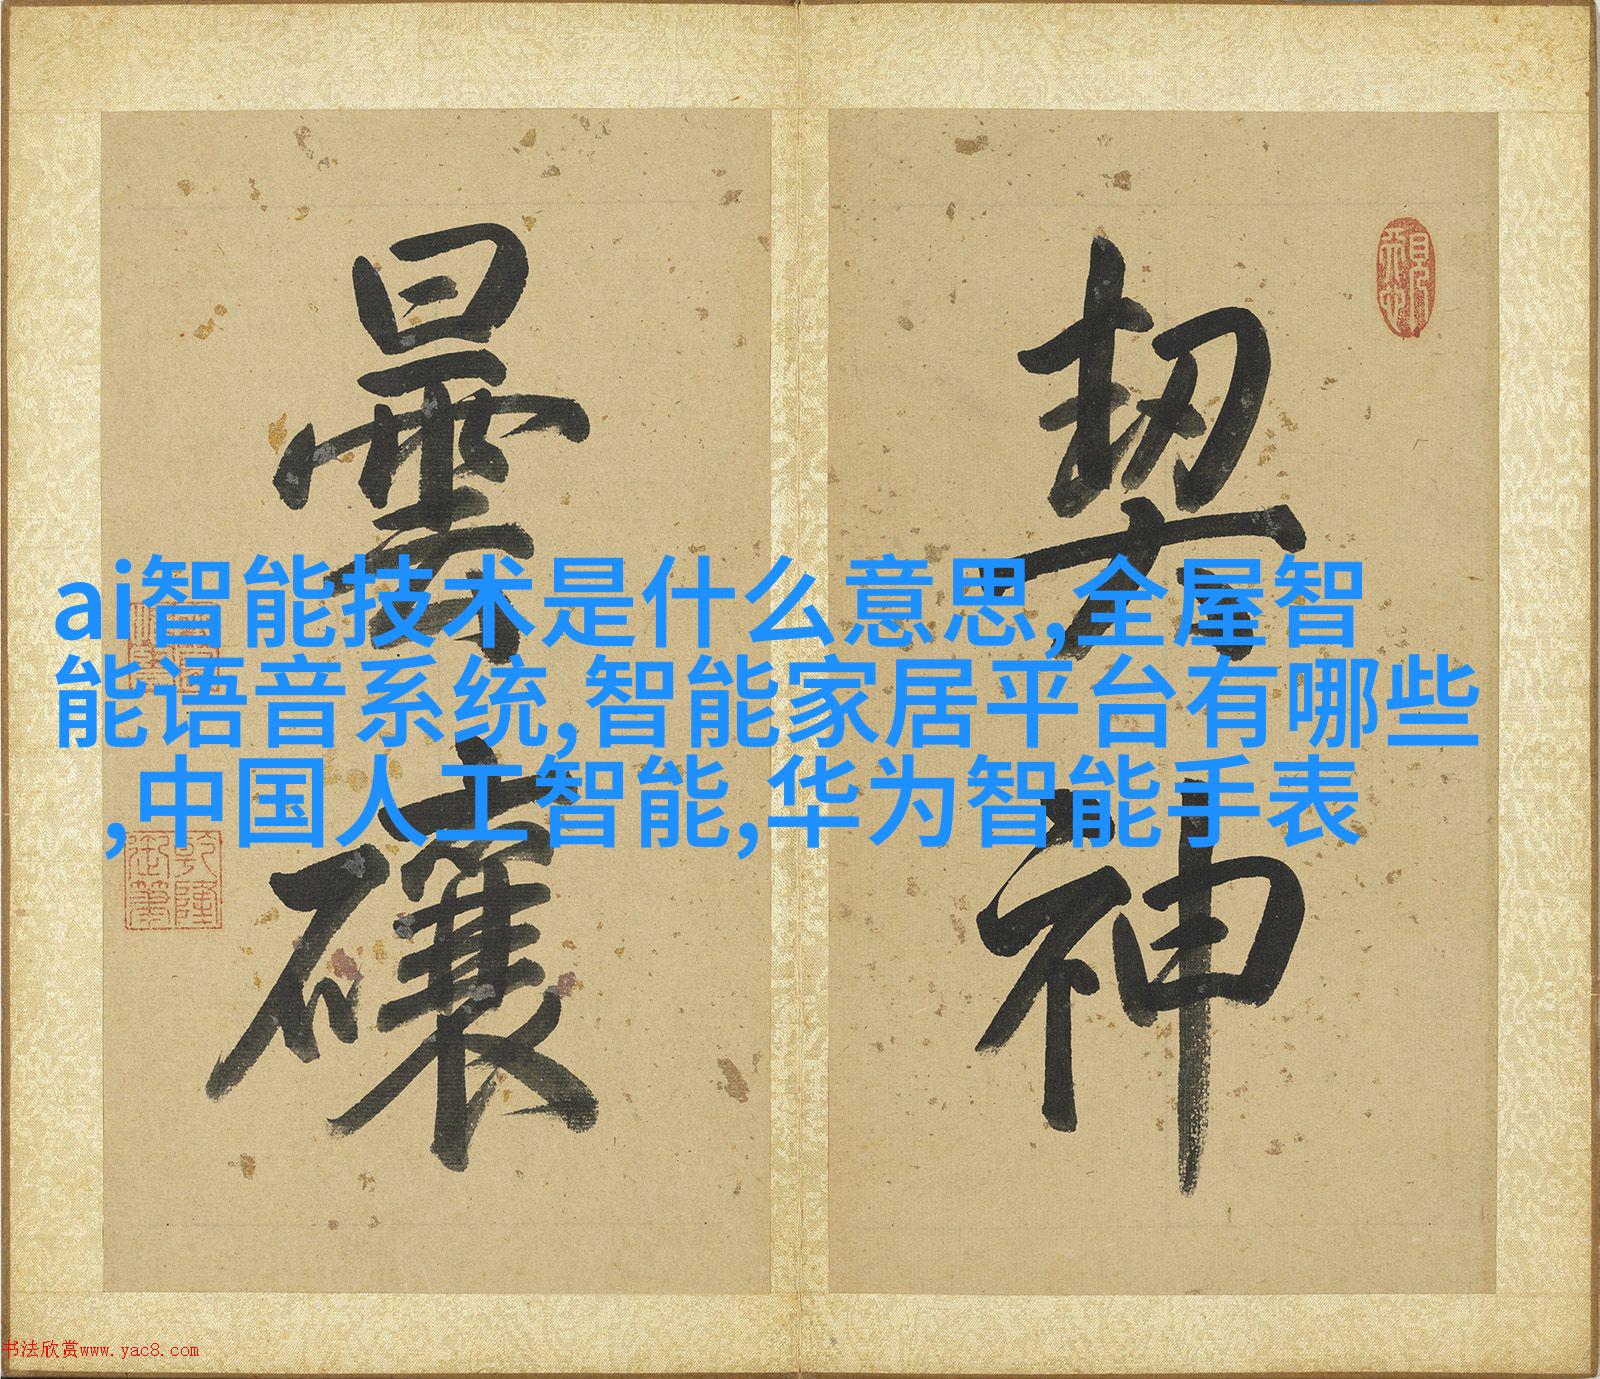 契神
曇礲
ai智能技术是什么意思,全屋智
能语音系统,智能家居平台有哪些
,中国人工智能,华为智能手表
乾隆
御筆
书法欣赏www.yac8.com